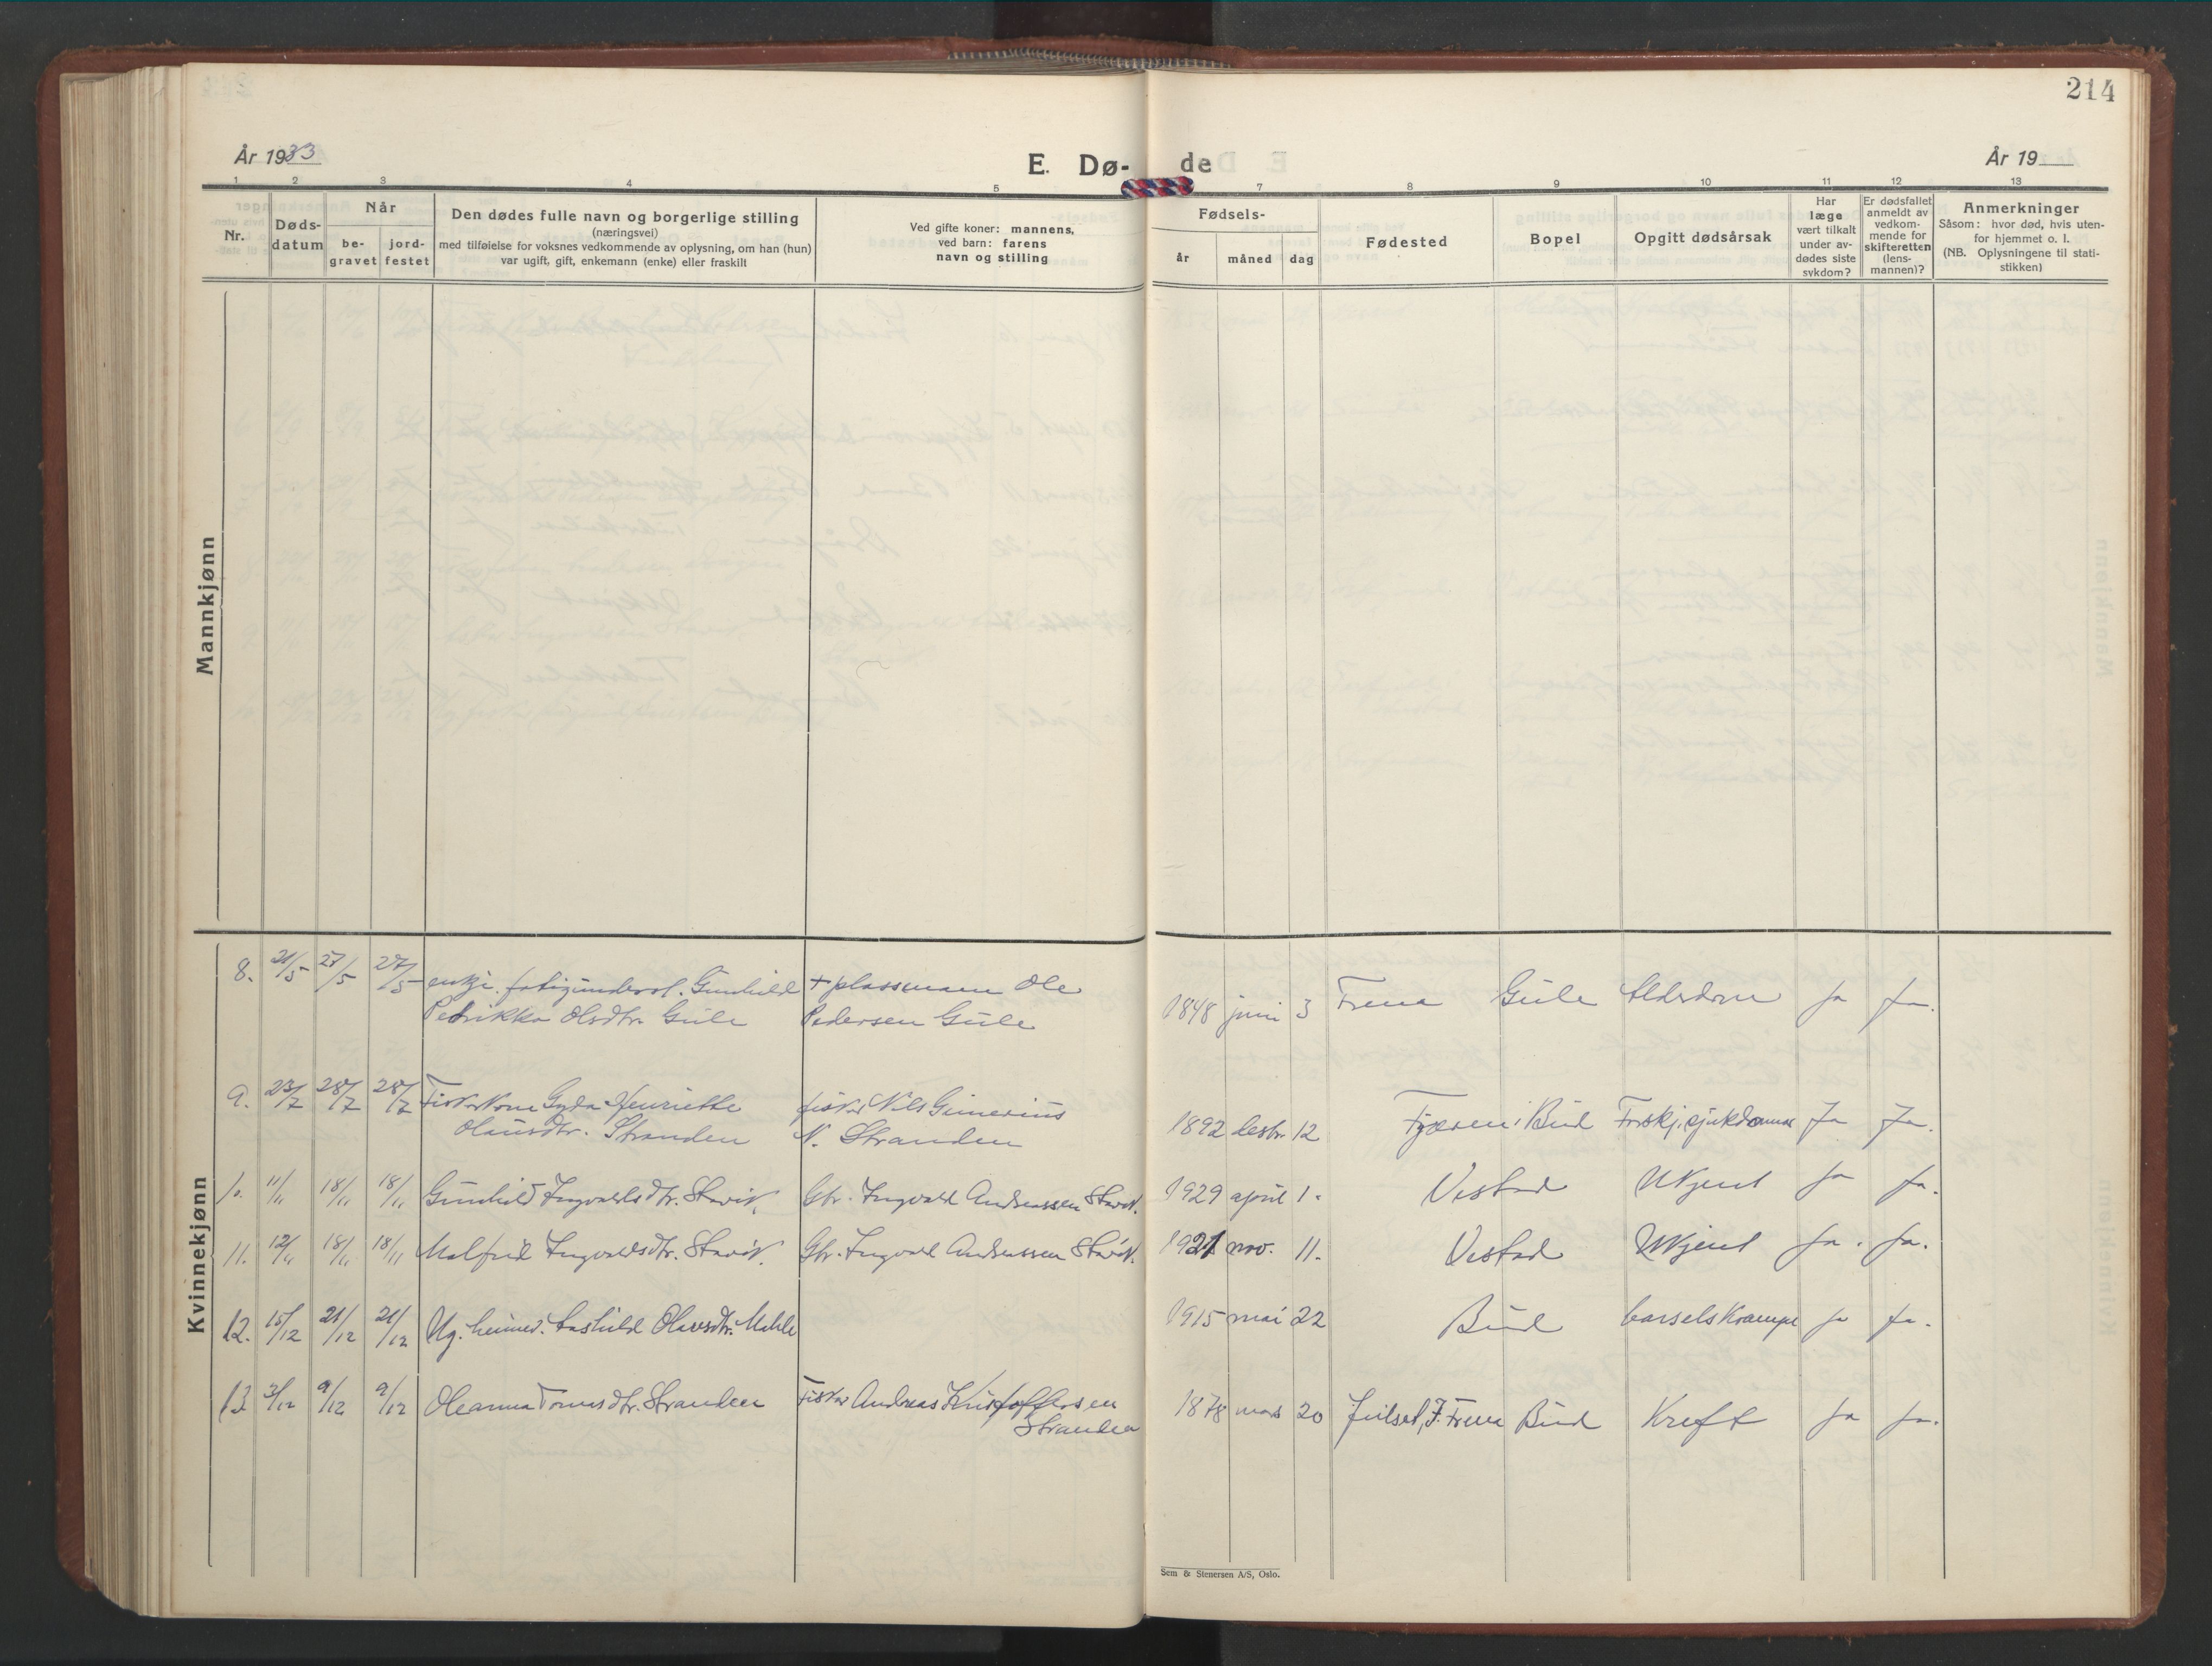 214
År 1933
E. Dø-
de
År 19
1 2 3 4 5 7 8 9 10 11 12 13
Nr.
Døds-
datum
Når
be-
gravet
jord-
festet
Den dødes fulle navn og borgerlige stilling
(næringsvei)
med tilføielse for voksnes vedkommende av oplysning, om han (hun)
var ugift, gift, enkemann (enke) eller fraskilt
Ved gifte koner: mannens,
ved barn: farens
navn og stilling
Fødsels-
år
måned
dag
Fødested
Bopel
Opgitt dødsårsak
Har
læge
vært tilkalt
under av-
dødes siste
sykdom?
Er dødsfallet
anmeldt av
vedkom-
mende for
skifteretten
(lens-
mannen)?
Anmerkninger
Såsom: hvor død, hvis uten-
for hjemmet o. l.
(NB. Oplysningene til stati-
stikken)
Mannkjønn
Kvinnekjønn
8. 21/5 27/5 27/5 enkje. fatigunderst. Gunhild + plassmann Ole
Pedrikka Olsdtr. Gule Pedersen Gule 1848 juni 3 Frena Gule Alderdom ja ja.
9. 23/7 28/7 28/7 Fiskarkone Gyda Henriette fiskar Nils Gunerius
Olausdtr. Stranden N. Stranden 1892 12 i Bud Forskj. sjukdommar Ja Ja.
10. 11/11 18/11 18/11 Gunhild Ingvaldsdtr. Stavik. Gbr. Ingvald Andreassen Stavik. 1929 april 1. Vestad Ukjent ja ja.
11. 12/11 18/11 18/11 Malfrid Ingvaldsdtr. Stavik. Gbr. Ingvald Andreassen Stavik. 1921 nov. 11. Vestad Ukjent ja. ja.
12. 15/12 21/12 21/12 Ug. heimev. Aashild Olavsdtr. Male 1915 mai 22 Bud barselskrampe ja ja.
13. 3/12 9/12 9/12 Oleanna Tomasdtr. Stranden Fiskar Andreas Kristoffersen
Stranden 1878 mars 20 Julset, J. Frena Bud Kreft ja ja.
Sem & Stenersen A/S, Oslo.